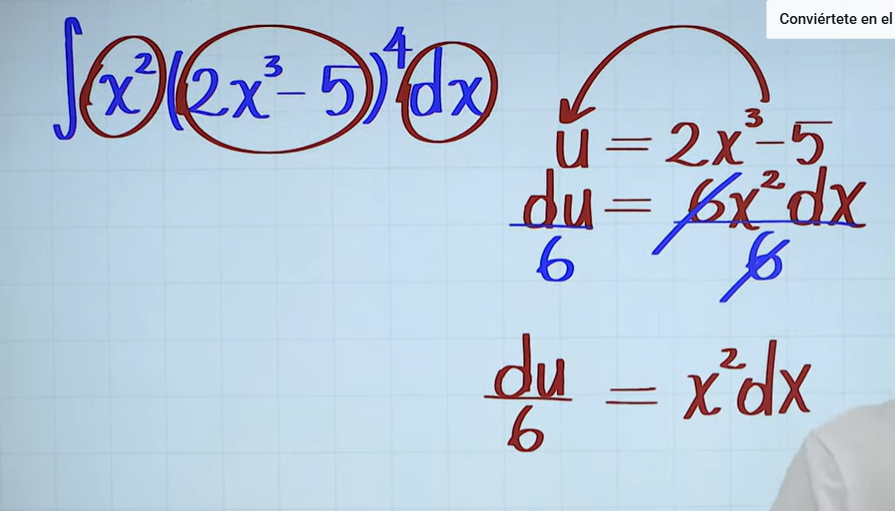 Conviértete en el
∫x²(2x³-5)⁴dx
u = 2x³-5
du/6 = 6x²dx/6
du/6 = x²dx